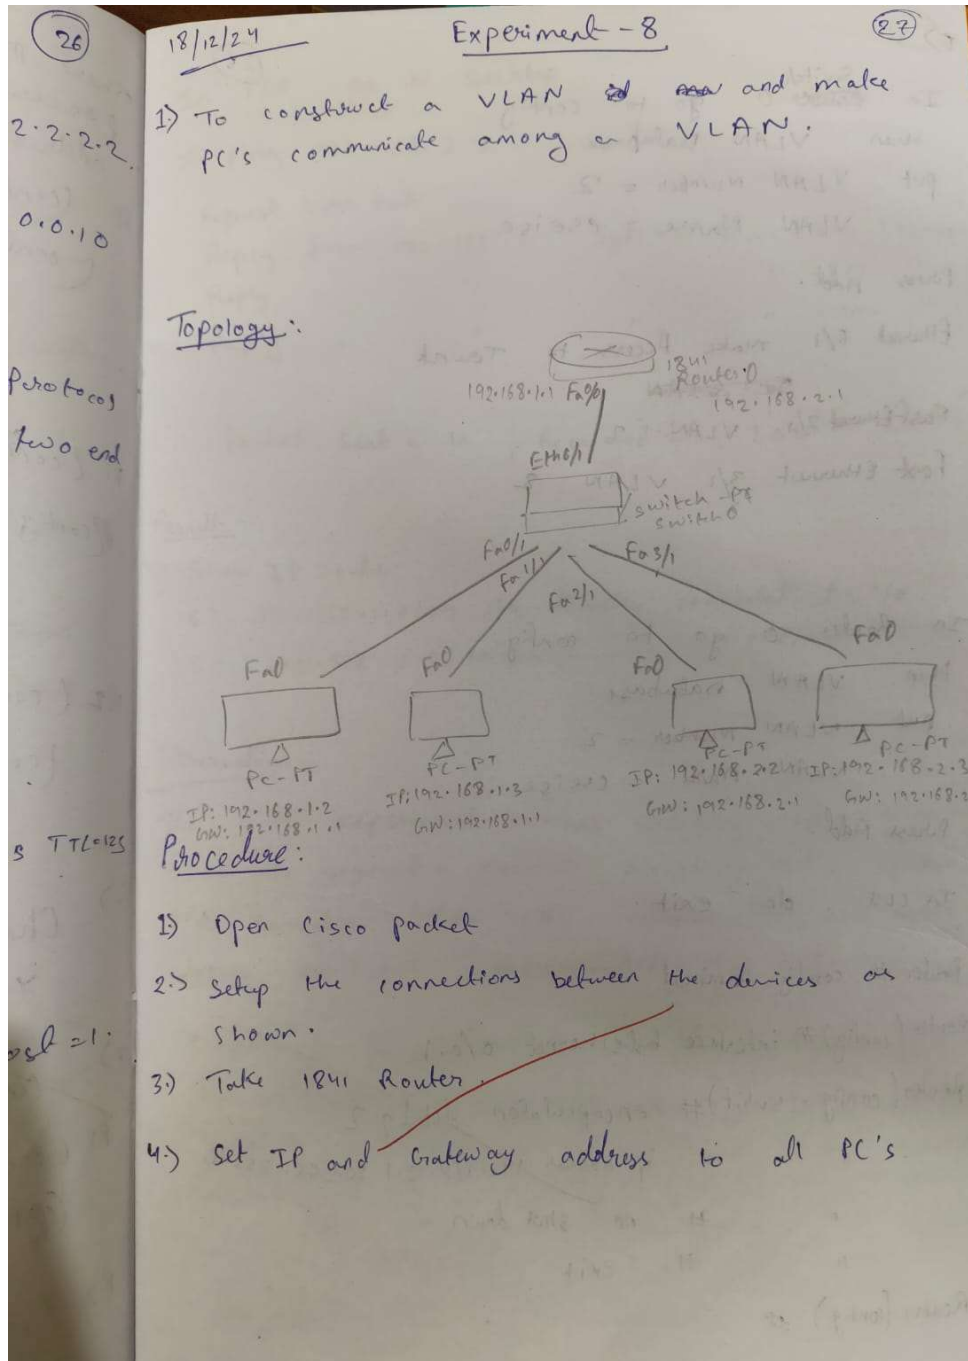 26
2.2.2.2.
0.0.10
Protocol
two end
s TTL=125
ost = 1.
18/12/24
Experiment - 8
27
1.) To construct a VLAN and make
PC's communicate among a VLAN.
Topology:
1841
Router0
192.168.1.1 Fa0/0
192.168.2.1
Eth6/1
Switch-PT
Switch0
Fa0/1
Fa1/1
Fa2/1
Fa3/1
Fa0
Fa0
Fa0
Fa0
PC-PT
PC-PT
PC-PT
PC-PT
IP: 192.168.1.2
GW: 192.168.1.1
IP: 192.168.1.3
GW: 192.168.1.1
IP: 192.168.2.2
GW: 192.168.2.1
IP: 192.168.2.3
GW: 192.168.2
Procedure:
1.) Open Cisco packet
2.) Setup the connections between the devices as
shown.
3.) Take 1841 Router.
4.) Set IP and Gateway address to all PC's